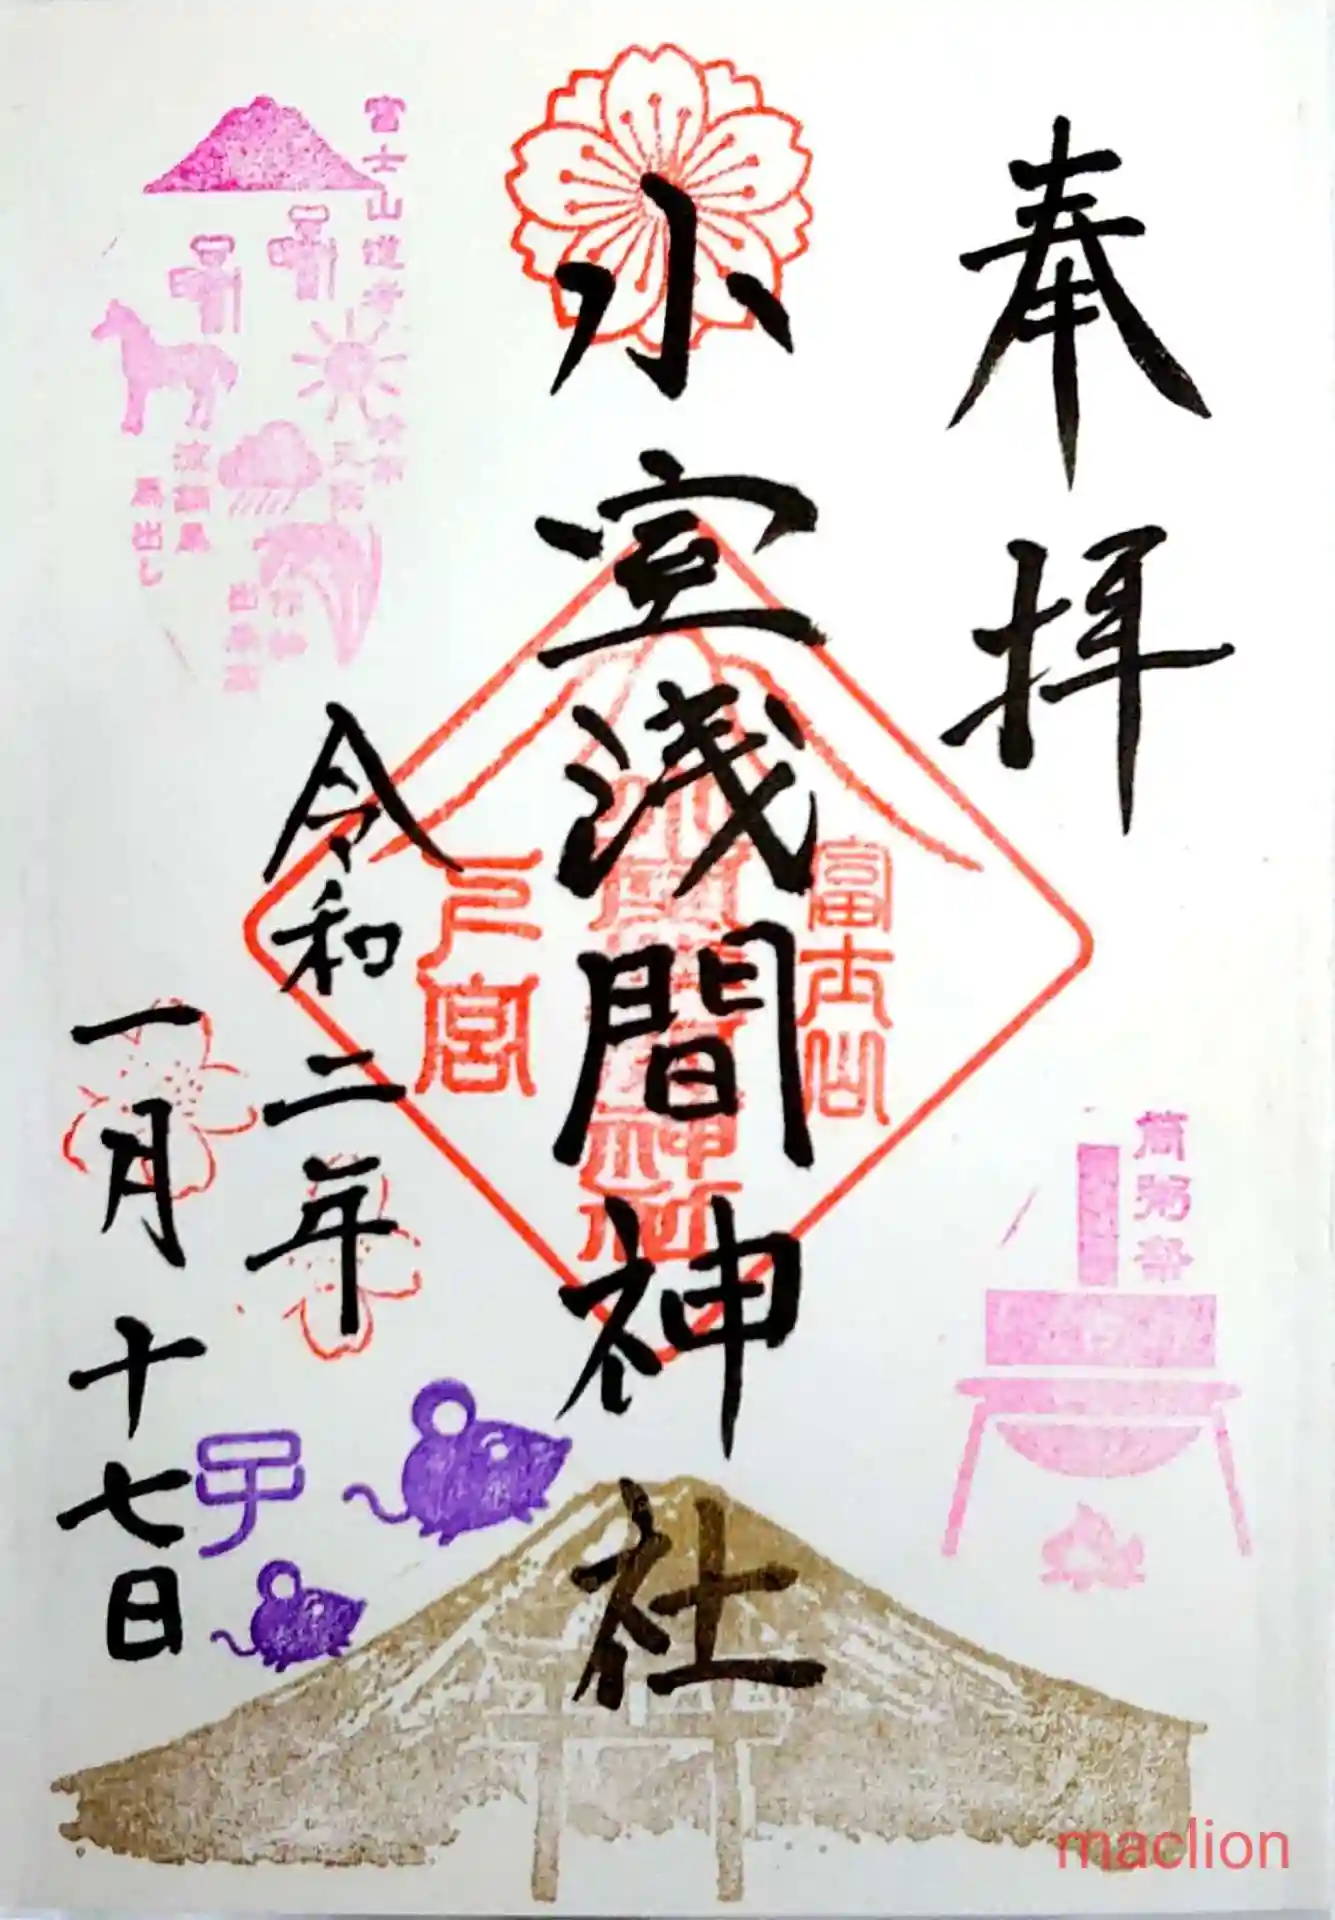 奉拝
富士山
小室浅間神社
下宮
令和二年
一月十七日
子
富士山道者
流鏑馬
馬出し
筒粥祭
maclion